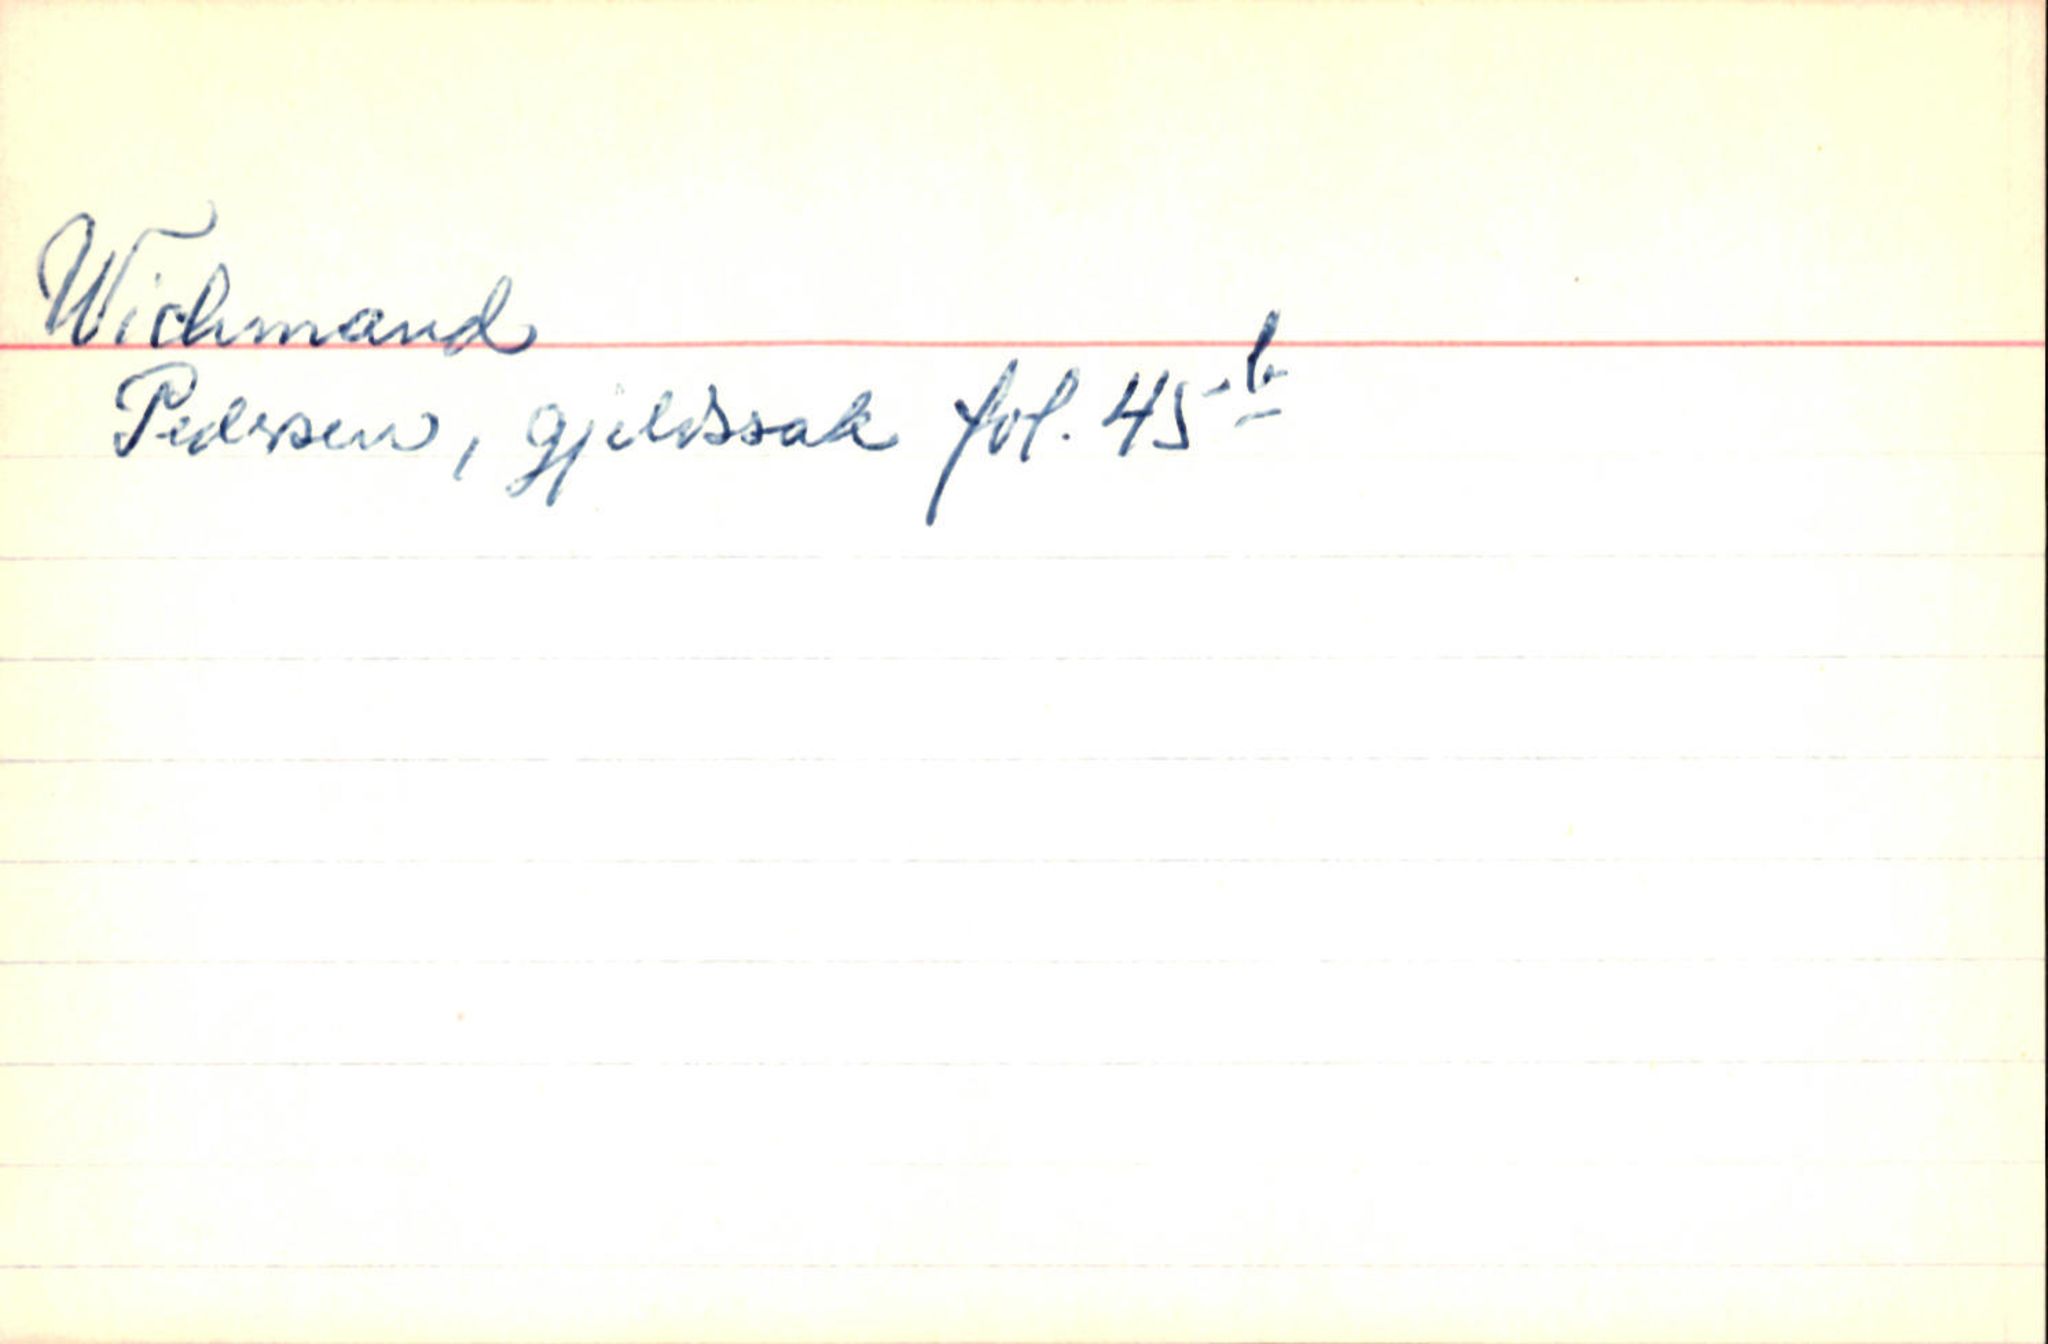 Wichmand
Pedersen, gjeldssak fol. 45 b